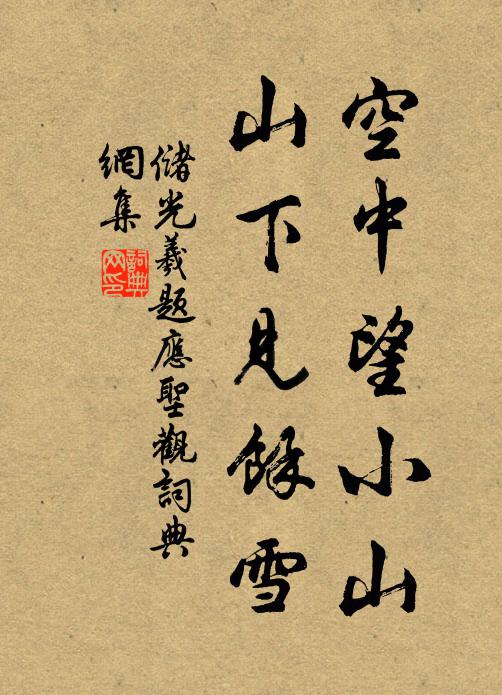 空中望小山
山下見餘雪
儲光羲題應聖觀詞典
網集
詞典
网印